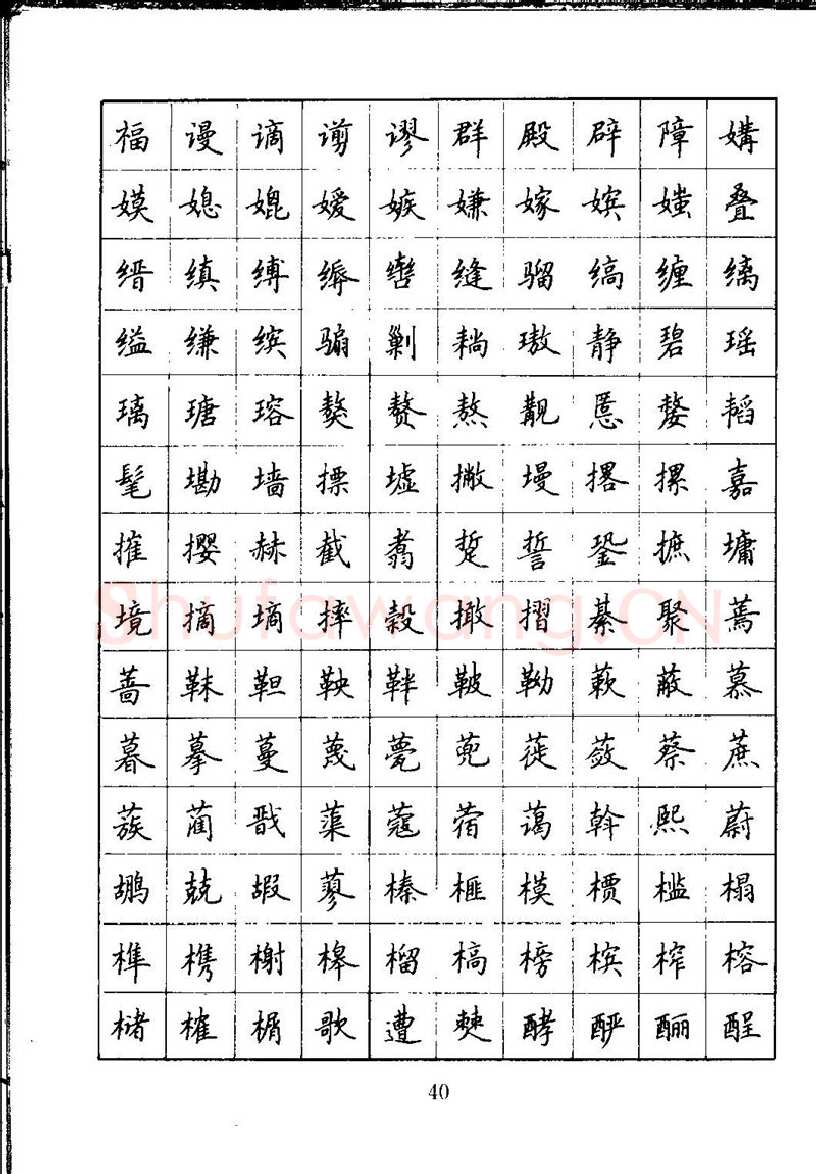 福 谩 谪 谫 谬 群 殿 辟 障 媾
嫫 媳 媲 嫒 嫉 嫌 嫁 嫔 媸 叠
缙 缜 缚 缛 辔 缝 骝 缟 缠 缡
缢 缣 缤 骟 剿 耥 璈 静 碧 瑶
璃 瑭 瑢 獒 赘 熬 觏 慝 嫠 韬
髦 墈 墙 摽 墟 撇 墁 撂 摞 嘉
摧 撄 赫 截 翥 踅 誓 銎 摭 墉
境 摘 墒 摔 榖 撖 摺 綦 聚 蔫
蔷 靺 靼 鞅 靽 鞁 靿 蔌 蔽 慕
暮 摹 蔓 蔑 甍 蔸 蓰 蔹 蔡 蔗
蔟 蔺 戬 蕖 蔻 蓿 蔼 斡 熙 蔚
鹕 兢 嘏 蓼 榛 榧 模 槚 槛 榻
榫 槜 榭 槔 榴 槁 榜 槟 榨 榕
槠 榷 楣 歌 遭 僰 酵 酽 酾 酲
Shufawang.CN
40